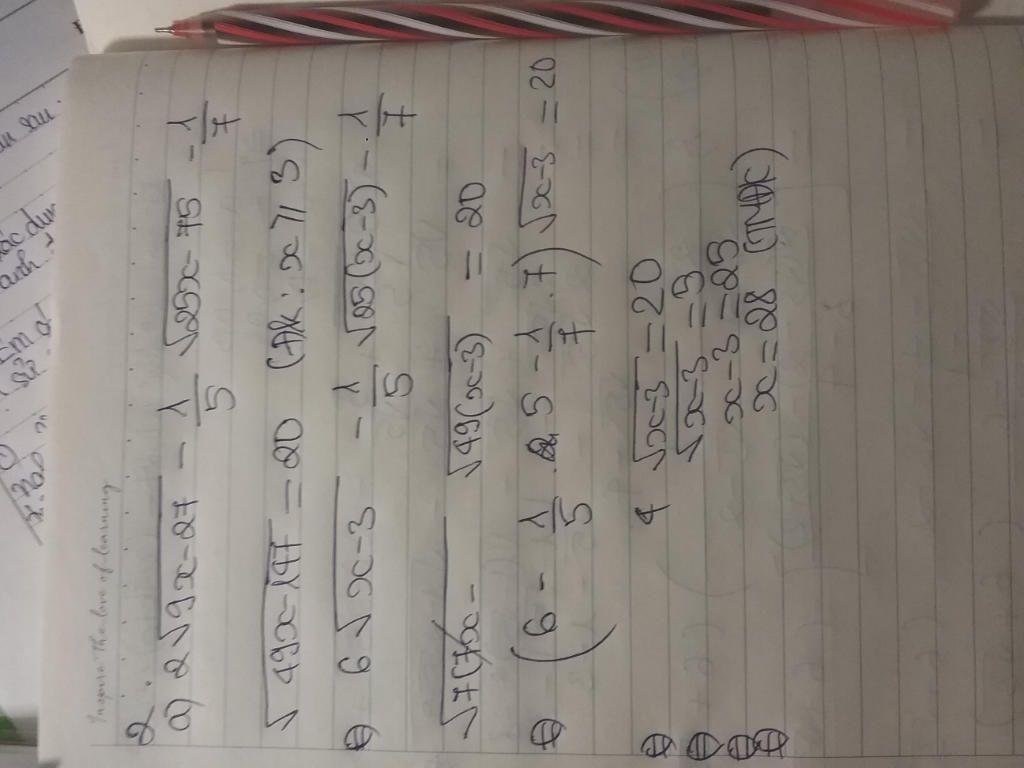 Inspire the love of learning
2.
a) 2√(9x-27) - 1/5 √(25x-75) - 1/7
√(49x-147) = 20 (ĐK: x ≥ 3)
⇔ 6√(x-3) - 1/5 √(25(x-3)) - 1/7
√(49(x-3)) = 20
⇔ (6 - 1/5 . 5 - 1/7 . 7) √(x-3) = 20
⇔ 4 √(x-3) = 20
⇔ √(x-3) = 3
⇔ x-3 = 25
⇔ x = 28 (TMĐK)